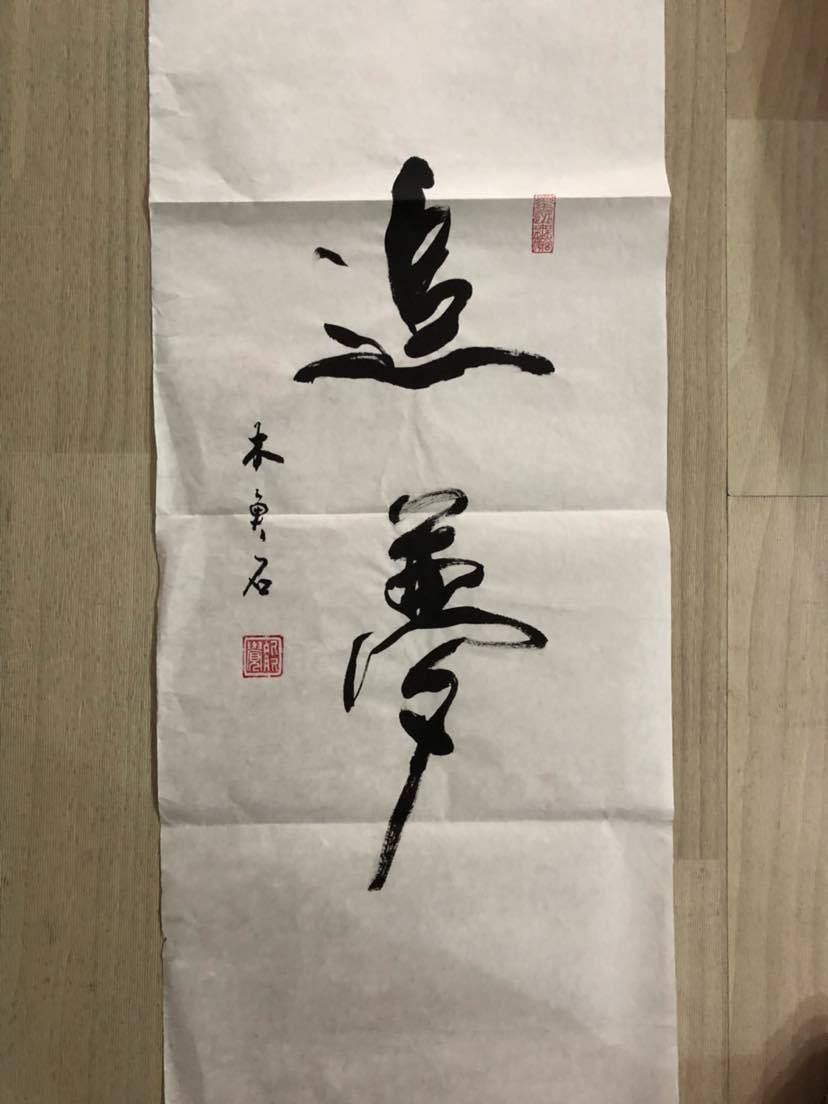 追夢
木魚石